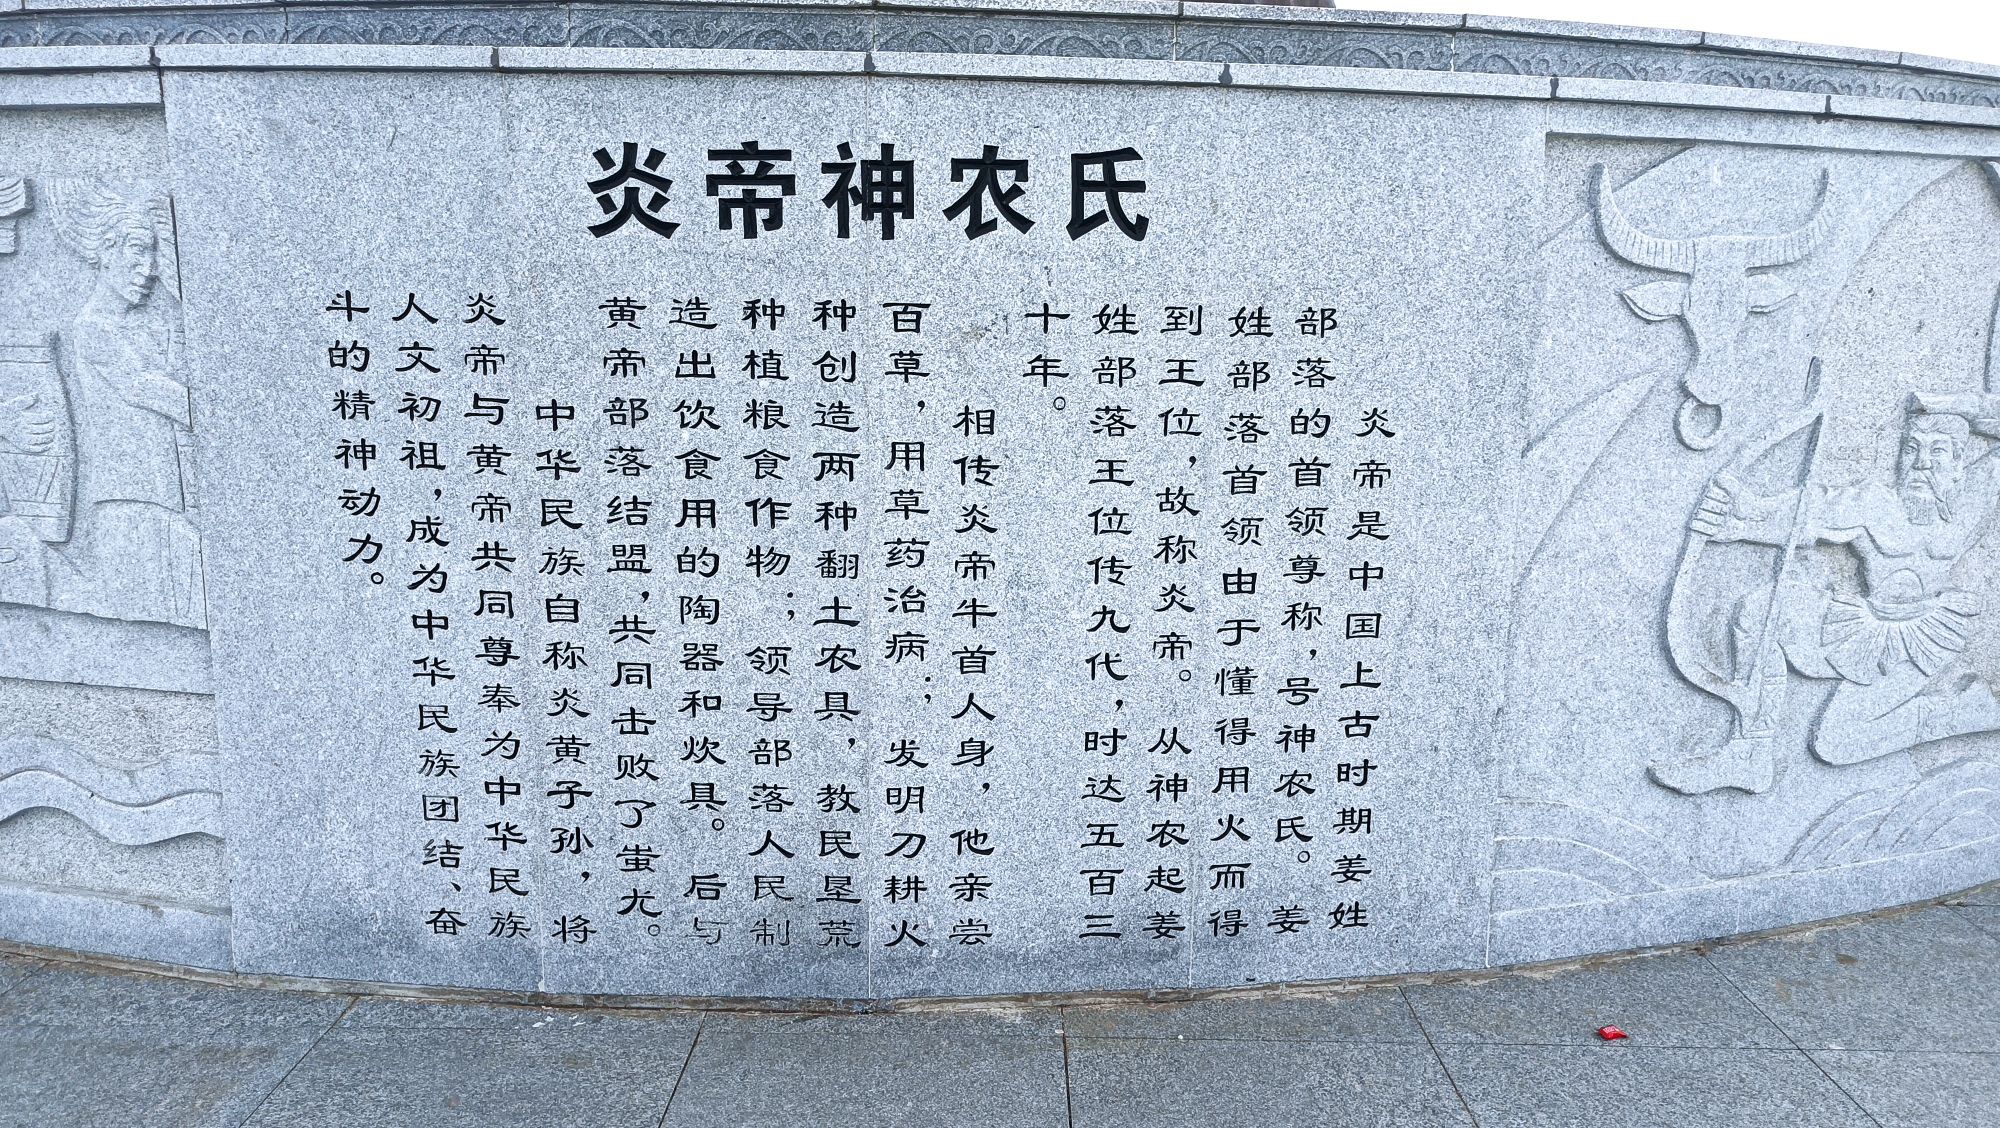 炎帝神农氏
炎帝是中国上古时期姜姓
部落的首领尊称,号神农氏。姜
姓部落首领由于懂得用火而得
到王位,故称炎帝。从神农起姜
姓部落王位传九代,时达五百三
十年。
相传炎帝牛首人身,他亲尝
百草,用草药治病;发明刀耕火
种创造两种翻土农具,教民垦荒
种植粮食作物;领导部落人民制
造出饮食用的陶器和炊具。后与
黄帝部落结盟,共同击败了蚩尤。
中华民族自称炎黄子孙,将
炎帝与黄帝共同尊奉为中华民族
人文初祖,成为中华民族团结、奋
斗的精神动力。